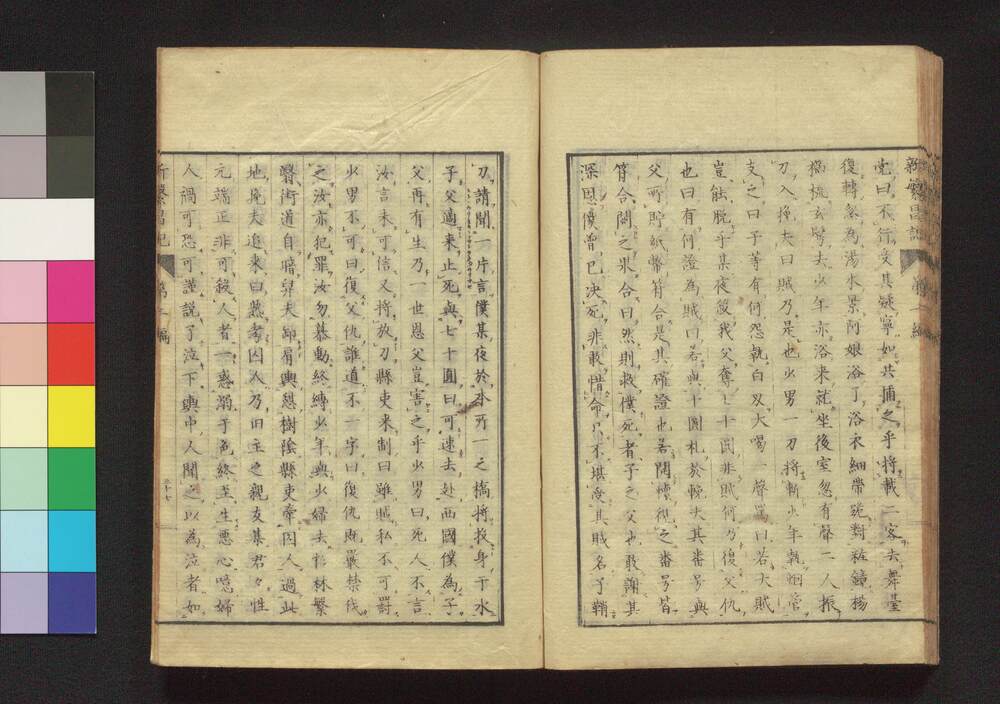 新繁昌記 第二編
党曰不行受其疑寧如共捕之乎將載二客去舞臺
復轉忽為湯水景阿娘浴了浴衣細帶跪對粧鏡楊
橋梳玄髩去少年亦浴来就坐後室忽有聲二人振
刀入挽夫曰賊乃是也少男一刀将斬少年執烟管
支之曰子等有何怨執白刄大喝一聲罵曰若大賊
豈能脱乎某夜殺我父奪七十圓非賊何乃復父仇
也曰有何證為賊曰若與十圓札於挽夫其番号與
父所貯紙幣符合是其確證也若開懐視之番号皆
符合問之果合曰然則救僕死者子之父也敢謝其
深恩僕曽已决死非敢惜命只不堪受其賊名予鞘
刀請聞一片言僕某夜於本所一之橋将投身于水
子父適来止死與七十圓曰可速去赴西國僕為子
父再有生乃一世恩父豈害之乎少男曰死人不言
汝言未可信又将放刀縣吏来制曰雖賊私不可罸
少男不可曰復父仇誰道不一字曰復仇既嚴禁我
之汝亦犯罪汝勿暴動終縛少年與少婦去杉林繁
欝街道自暗舁夫卸肩輿憩樹陰縣吏牽囚人過此
地挽夫追来曰熟考囚人乃旧主之親友某君々性
元端正非可殺人者一惑溺于色終至生悪心噫婦
人禍可恐可謹説了泣下輿中人聞之以為泣者如
新繁昌記 第二編
三十七